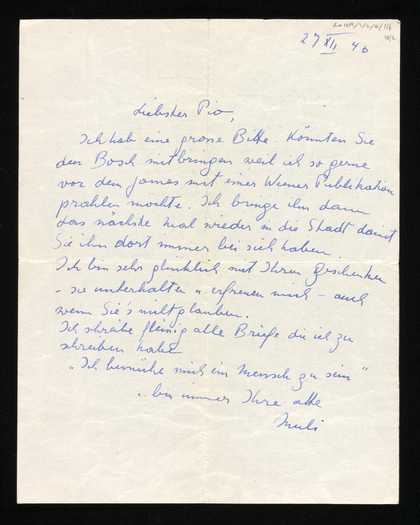 27 XII 46
Liebster Pio,
Ich hab eine grosse Bitte. Könnten Sie
den Bosch mitbringen weil ich so gerne
vor dem James mit einer Wiener Publikation
prahlen möchte. Ich bringe ihn dann
das nächste Mal wieder in die Stadt damit
Sie ihn dort immer bei sich haben.
Ich bin sehr glücklich mit Ihren Geschenken
– sie unterhalten u erfreuen mich – auch
wenn Sie's nicht glauben.
Ich schreibe fleissig alle Briefe die ich zu
schreiben habe
"Ich bemühe mich ein Mensch zu sein"
bin immer Ihre alte